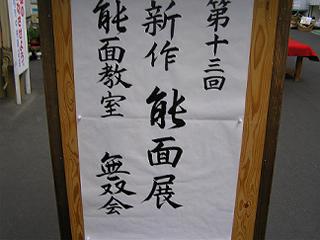 第十三回
新作能面展
能面教室 無双会